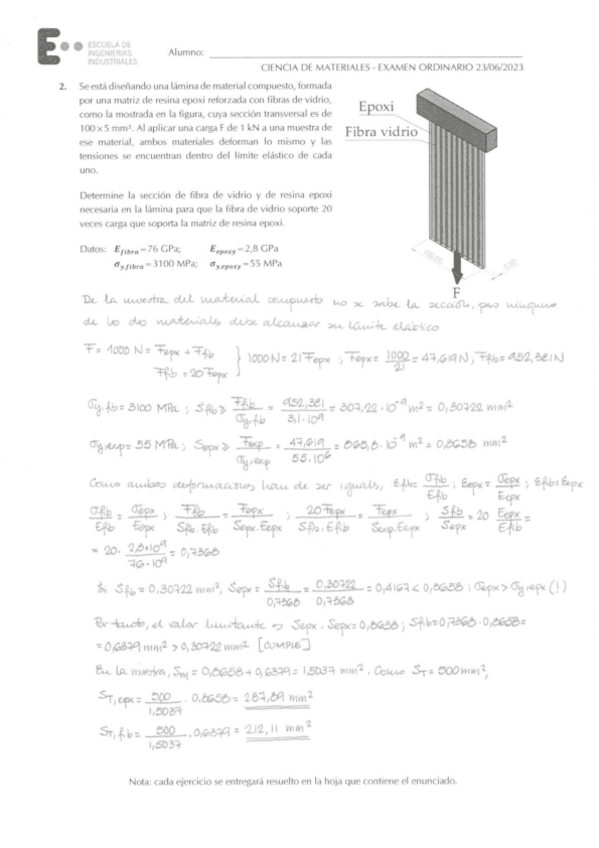 ESCUELA DE
INGENIERÍAS
INDUSTRIALES
Alumno:
CIENCIA DE MATERIALES - EXAMEN ORDINARIO 23/06/2023
2. Se está diseñando una lámina de material compuesto, formada
por una matriz de resina epoxi reforzada con fibras de vidrio,
como la mostrada en la figura, cuya sección transversal es de
100×5 mm². Al aplicar una carga F de 1 kN a una muestra de
ese material, ambos materiales deforman lo mismo y las
tensiones se encuentran dentro del límite elástico de cada
uno.
Epoxi
Fibra vidrio
100,00
5,00
F
Determine la sección de fibra de vidrio y de resina epoxi
necesaria en la lámina para que la fibra de vidrio soporte 20
veces carga que soporta la matriz de resina epoxi.
Datos: E fibra = 76 GPa; E epoxy = 2,8 GPa
σ y fibra = 3100 MPa; σ y epoxy = 55 MPa
De la muestra del material compuesto no se sabe la sección, pero ninguno
de los dos materiales debe alcanzar su límite elástico
F = 1000 N = Fepx + Ffib } 1000N = 21 Fepx ; Fepx = 1000/21 = 47,619N ; Ffib = 952,381N
Ffib = 20 Fepx
σy,fib = 3100 MPa ; Sfib ≥ Ffib/σy,fib = 952,381/3,1·10⁹ = 307,22·10⁻⁹ m² = 0,30722 mm²
σy,exp = 55 MPa ; Sepx ≥ Fexp/σy,exp = 47,619/55·10⁶ = 865,8·10⁻⁹ m² = 0,8658 mm²
Como ambas deformaciones han de ser iguales, Efib = σfib/Efib ; Eepx = σepx/Eepx ; Efib = Eepx
σfib/Efib = σepx/Eepx ; Ffib/Sfib·Efib = Fepx/Sepx·Eepx ; 20 Fepx/Sfib·Efib = Fepx/Sexp·Eepx ; Sfib/Sepx = 20 Eepx/Efib =
= 20 · 2,8·10⁹/76·10⁹ = 0,7368
Si Sfib = 0,30722 mm², Sepx = Sfib/0,7368 = 0,30722/0,7368 = 0,4167 < 0,8658 ; σepx > σy,epx (!)
Por tanto, el valor limitante es Sepx. Sepx = 0,8658 ; Sfib = 0,7368 · 0,8658 =
= 0,6379 mm² > 0,30722 mm² [CUMPLE]
En la muestra, SM = 0,8658 + 0,6379 = 1,5037 mm². Como ST = 500 mm²,
ST,epx = 500/1,5037 · 0,8658 = 287,89 mm²
ST,fib = 500/1,5037 · 0,6379 = 212,11 mm²
Nota: cada ejercicio se entregará resuelto en la hoja que contiene el enunciado.